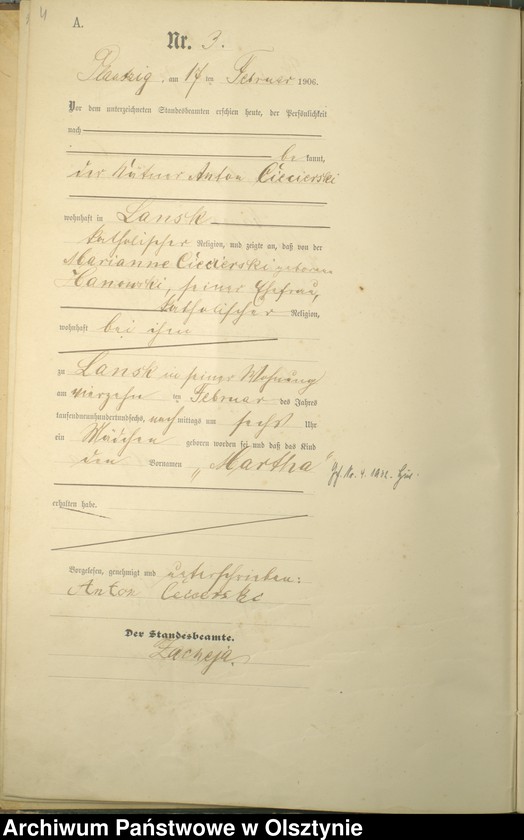 4
A.
Nr. 3.
am 17 ten Februar 1906.
Vor dem unterzeichneten Standesbeamten erschien heute, der Persönlichkeit
nach
be kannt,
der Kätner Anton Ciecierski
wohnhaft in Lansk
katholischer Religion, und zeigte an, daß von der
Marianne Ciecierski geborene
seiner Ehefrau,
katholischer Religion,
wohnhaft bei ihm
zu Lansk in seiner Wohnung
am vierzehn ten Februar des Jahres
tausendneunhundertundsechs, nach mittags um sechs Uhr
ein Mädchen geboren worden sei und daß das Kind
den Vornamen „Martha“
erhalten habe.
Vorgelesen, genehmigt und unterschrieben:
Anton
Der Standesbeamte.
Archiwum Państwowe w Olsztynie